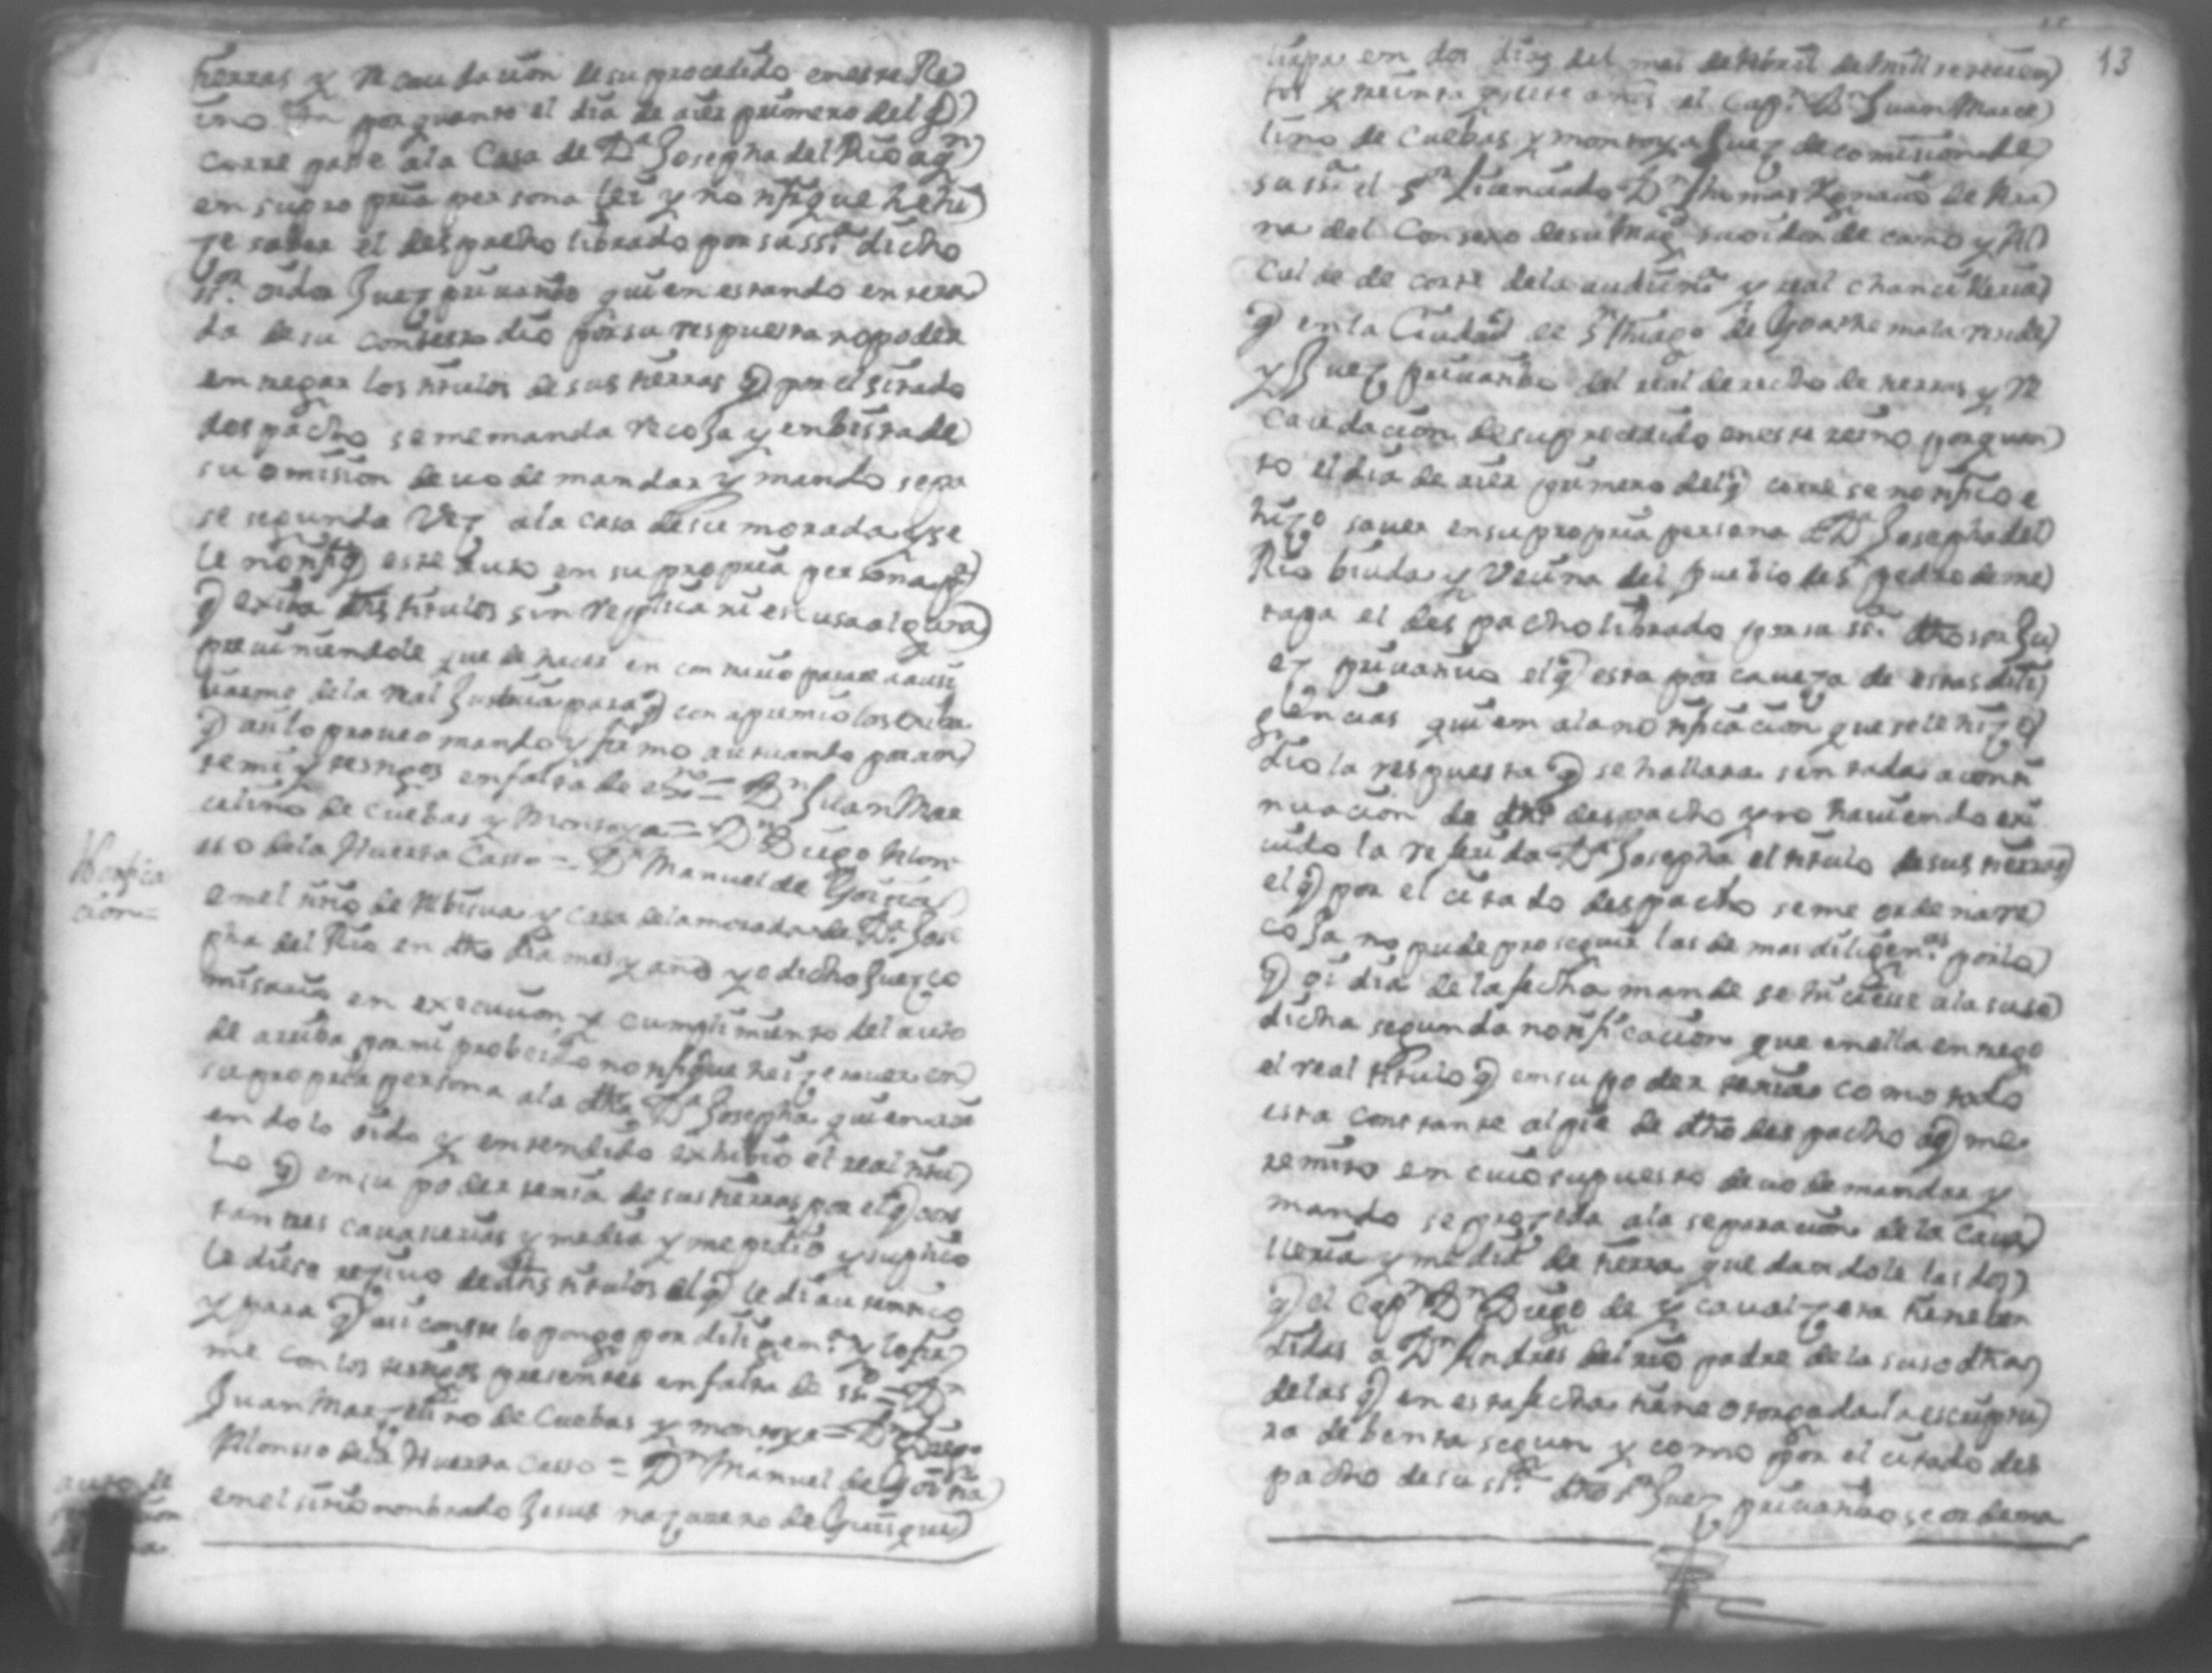 tierras y recaudacion de su procedido en este Re
ino = por quanto el dia de aier primero del q
corre pase a la Casa de Dª Josepha del Rio a qn
en su propria persona lei y notifique he hi
ze saver el despacho librado por su ssª dicho
sr. oidor Juez privativo quien estando entera
da de su contesto dio por su respuesta no poder
entregar los titulos de sus tierras q por el sitado
despacho se me manda recoja y en bista de
su omision devo de mandar y mando se pa
se segunda vez a la casa de su morada y se
le notifiq este auto en su propria persona pª
q exiva dhos titulos sin replica ni escusa alguna
previniendole que de hacer en contrario pasare a auci
liarme de la real Justicia para q con apremio los exiva
q asi lo proveo mando y firmo actuando por an
te mi y testigos en falta de esno = Dn Juan Mar
celino de Cuebas y Montoya = Dn Diego Alon
sso de la Huerta Casso = Dn Manuel de Goitia
Notifica
cion =
en el sitio de Atbisua y casa de la morada de Dª Jose
pha del Rio en dho dia mes y año yo dicho Juez co
misario en execucion y cumplimiento del auto
de arriba por mi probeido notifique he ize saver en
su propria persona a la dha Dª Josepha quien avi
endolo oido y entendido exhivio el real titu
lo q en su poder tenia de sus tierras por el q cons
tan tres cavallerias y media y me pidio y suplico
le diese rezivo de dhos titulos el q le di autentico
y para q asi conste lo pongo por diligenª y lo fir
me con los testigos presentes en falta de ssno = Dn
Juan Marzelino de Cuebas y montoya = Dn Diego
Alonsso de la Huerta Casso = Dn Manuel de Goitia
auto de
en el sitio nombrado Jesus nazareno de Guisquil
13
tiupa en dos dias del mes de Abril de mill setecien
tos y treinta y siete años el Capn Dn Juan Marce
lino de Cuebas y montoya Juez de comision de
su ssª el Sr Licenciado Dn Thomas Ygnacio de Ara
na del Consexo de su Magd su oidor de camo y Al
calde de corte de la audienª y real chancilleria
q en la Ciudad de Snthiago de Goathemala reside
y Juez privativo del real derecho de tierras y re
caudacion de su procedido en este reino por quan
to el dia de aier primero del q corre se notifico e
hizo saver en su propria persona a Dª Josepha del
Rio biuda y vecina del pueblo de Sn pedro de me
tapa el despacho librado por su ssª dho sor Ju
ez privativo el q esta por caveza de estas dili
gencias quien a la notificacion que se le hizo
dio la respuesta q se hallara sentada a conti
nuacion de dho despacho y no haviendo exi
vido la referida Dª Josepha el titulo de sus tierras
el q por el citado despacho se me ordena re
coja no pude proseguir las demas diligenas por lo
q oi dia de la fecha mande se hiciese a la suso
dicha segunda notificacion que en ella entrego
el real titulo q en su poder tenia como todo
esta constante al pie de dho despacho a q me
remito en cuio supuesto devo de mandar y
mando se proseda a la separacion de la Cava
lleria y media de tierra quedandole las dos
q el Capn Dn Diego de y cavalzeta tiene ben
didas a Dn Andres del rio padre de la suso dha
de las q en esta fecha tiene otorgada la escriptu
ra de benta segun y como por el citado des
pacho de su ssª dho sr Juez privativo se ordena